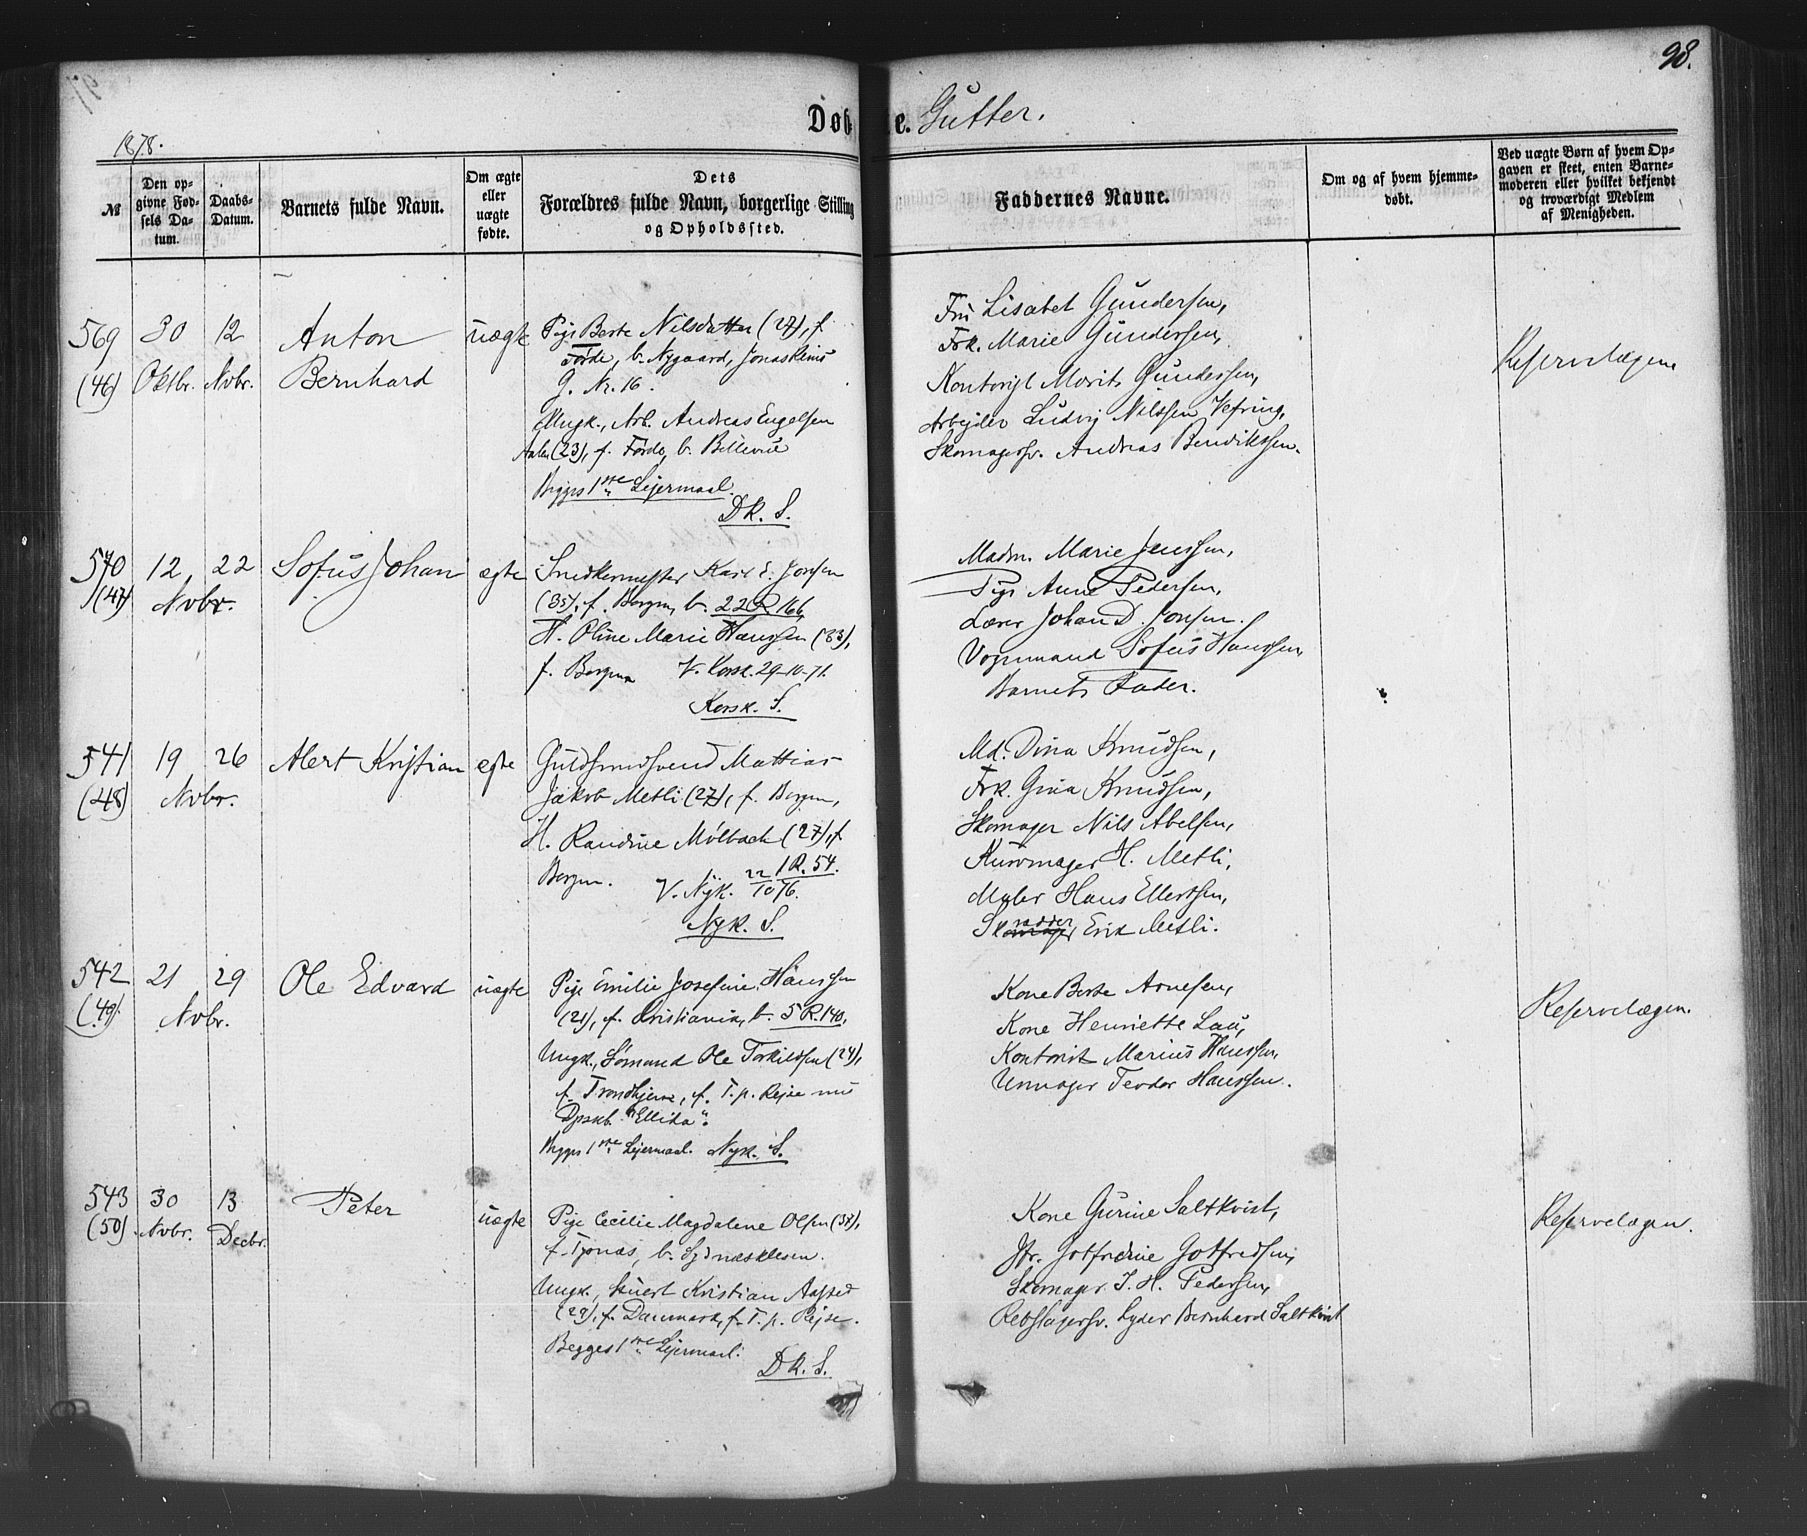 98.
1878.
Døbte. Gutter.
№
Den opgivne Fødsels Datum.
Daabs-Datum.
Barnets fulde Navn.
Om ægte eller uægte fødte.
Dets Forældres fulde Navn, borgerlige Stilling og Opholdssted.
Faddernes Navne.
Om og af hvem hjemmedøbt.
Ved uægte Børn af hvem Opgaven er skeet, enten Barnemoderen eller hvilket bekjendt og troværdigt Medlem af Menigheden.
569 30 12 Anton uægte
(46) Oktbr. Nvbr. Bernhard
Pige Berte Nilsdatter (27), f.
Førde, b. Nygaard, Jonas Reins
G. Nr. 16.
Ungk., Arb. Andreas Engelsen
(23), f. Førde, b. Bellevue
Begges 1ste Lejermaal.
DK. S.
Fru Lisabet Gundersen,
Frk. Marie Gundersen,
Kontorist Morits Gundersen,
Arbejder Ludvig Nilssen Vefring,
Skomagersv. Andreas Bendikssen.
Reservelægen
570 12 22 Sofus Johan egte
(47) Nvbr.
Snedkermester Karl E. Jonsen
(35), f. Bergen, b. 22 R. 166,
H. Oline Marie Hanssen (33),
f. Bergen V. Korsk. 29-10-71.
Korsk. S.
Madm. Marie Jenssen,
Pige Anne Pedersen,
Lærer Johan D. Jonsen.
Vognmand Sofus Hanssen,
Barnets Fader.
541 19 26 Alert Kristian egte
(48) Nvbr.
Guldsmedsvend Mattias
Jakob Metli (27), f. Bergen,
H. Randine Mølbach (27), f.
Bergen. 1 R. 54.
V. Nyk. 22/10 76.
Nyk. S.
Md. Dina Knudsen,
Frk. Gina Knudsen,
Skomager Nils Abelsen,
Kurvmager H. Metli,
Maler Hans Ellertsen,
Skomager radder Erik Metli.
542 21 29 Ole Edvard uægte
(49) Nvbr.
Pige Emilie Josefine Hanssen
(21), f. Kristiania, b. 5 R. 140,
Ungk., Sømand Ole Torkildsen (24),
f. Trondhjem, f. T. p. Rejse mæ
Dpskb. "Ellida".
Begges 1ste Lejermaal. Nyk. S.
Kone Berte Arnesen,
Kone Henriette Lau,
Kontorist Marius Hanssen,
Urmager Teodor Hanssen.
Reservelægen.
543 30 13 Peter uægte
(50) Nvbr. Decbr.
Pige Cecilie Magdalene Olsen (38),
f. Tysnæs, b. Sydnæsklesen.
Ungk., Stuert Kristian Aasted
(29), f. Danmark, f. T. p. Rejse.
Begges 1ste Lejermaal.
DK. S.
Kone Gurine Saltkvist,
Jfr. Gotfredine Gotfredsen,
Skomager J. H. Pedersen,
Rebslagersv. Lyder Bernhard Saltkvist
Reservelægen.